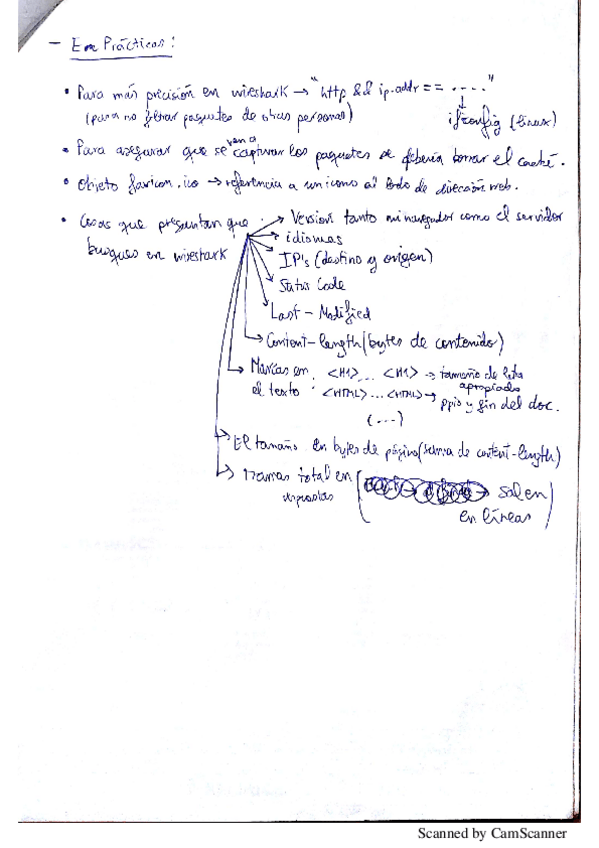 - En Prácticas:
• Para más precisión en wireshark → "http && ip.addr == ....."
(para no filtrar paquetes de otras personas)
ifconfig (linux)
• Para asegurar que se van a capturar los paquetes se debería borrar el caché.
• Objeto favicon.ico → referencia a un icono al lado de dirección web.
• Cosas que preguntan que
busques en wireshark
→ Versión tanto mi navegador como el servidor
→ idiomas
→ IP's (destino y origen)
→ Status Code
→ Last - Modified
→ Content-length (bytes de contenido)
→ Marcas en <H1>... <H1> → tamaño de letra apropiado
el texto: <HTML>...<HTML> → ppio y fin del doc.
(...)
→ El tamaño en bytes de página (suma de content-length)
→ total en → salen
respuestas
en líneas
Scanned by CamScanner